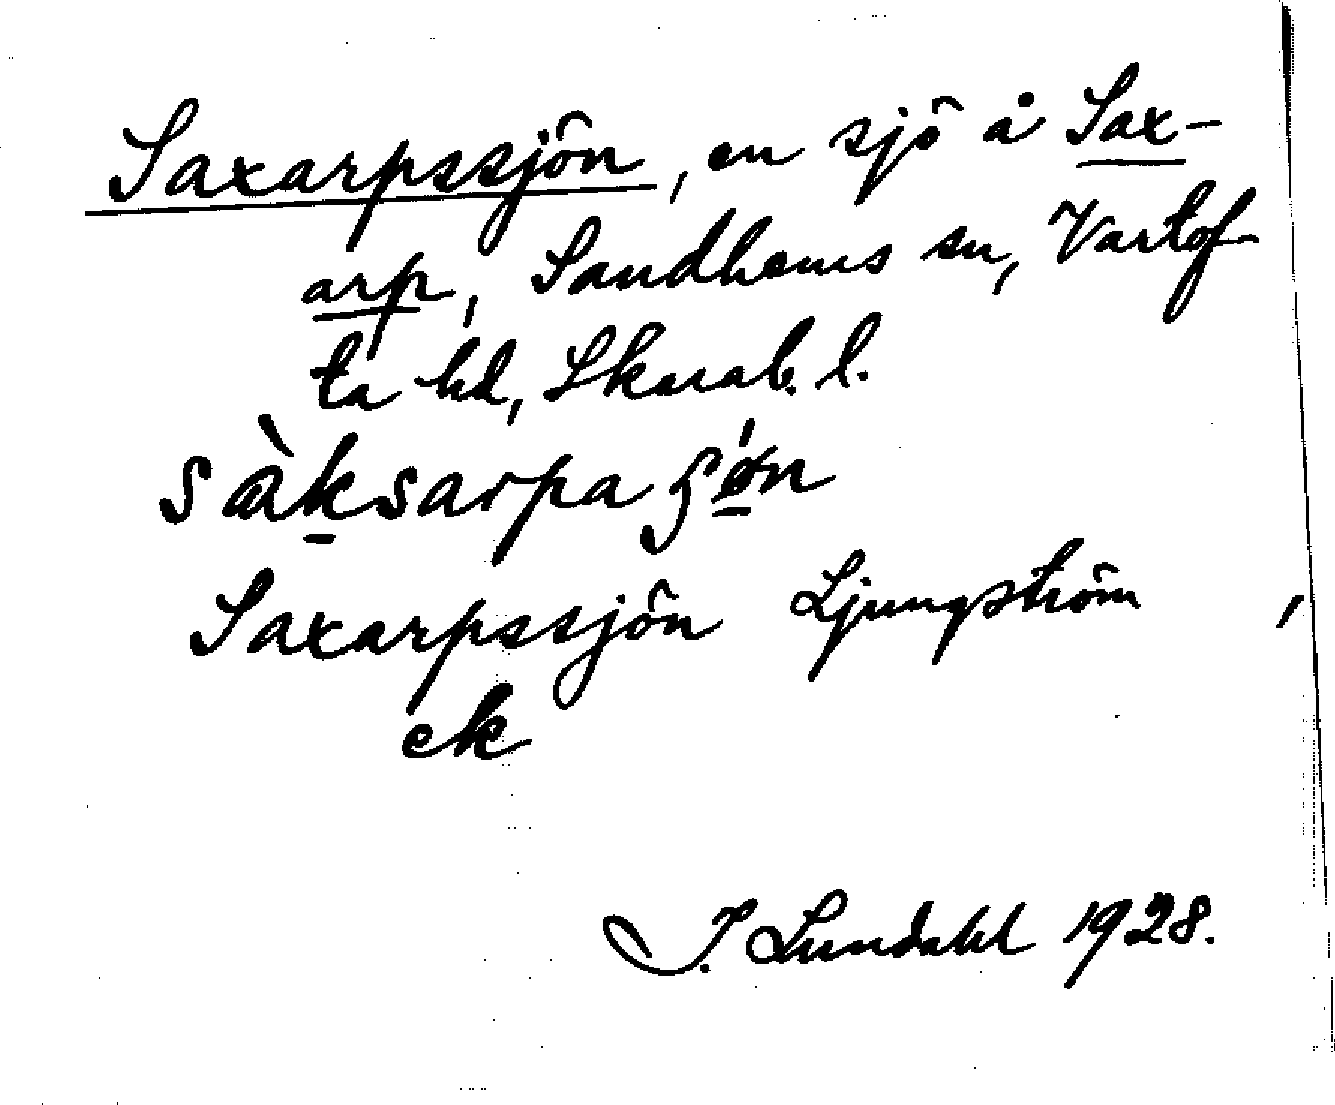 Saxarpssjön, en sjö å Sax-
arp, Sandhems sn, Vartof-
ta hd, Skarab. l.
sàksarpaʃǿn
Saxarpssjön Ljungström
ek
I. Lundahl 1928.